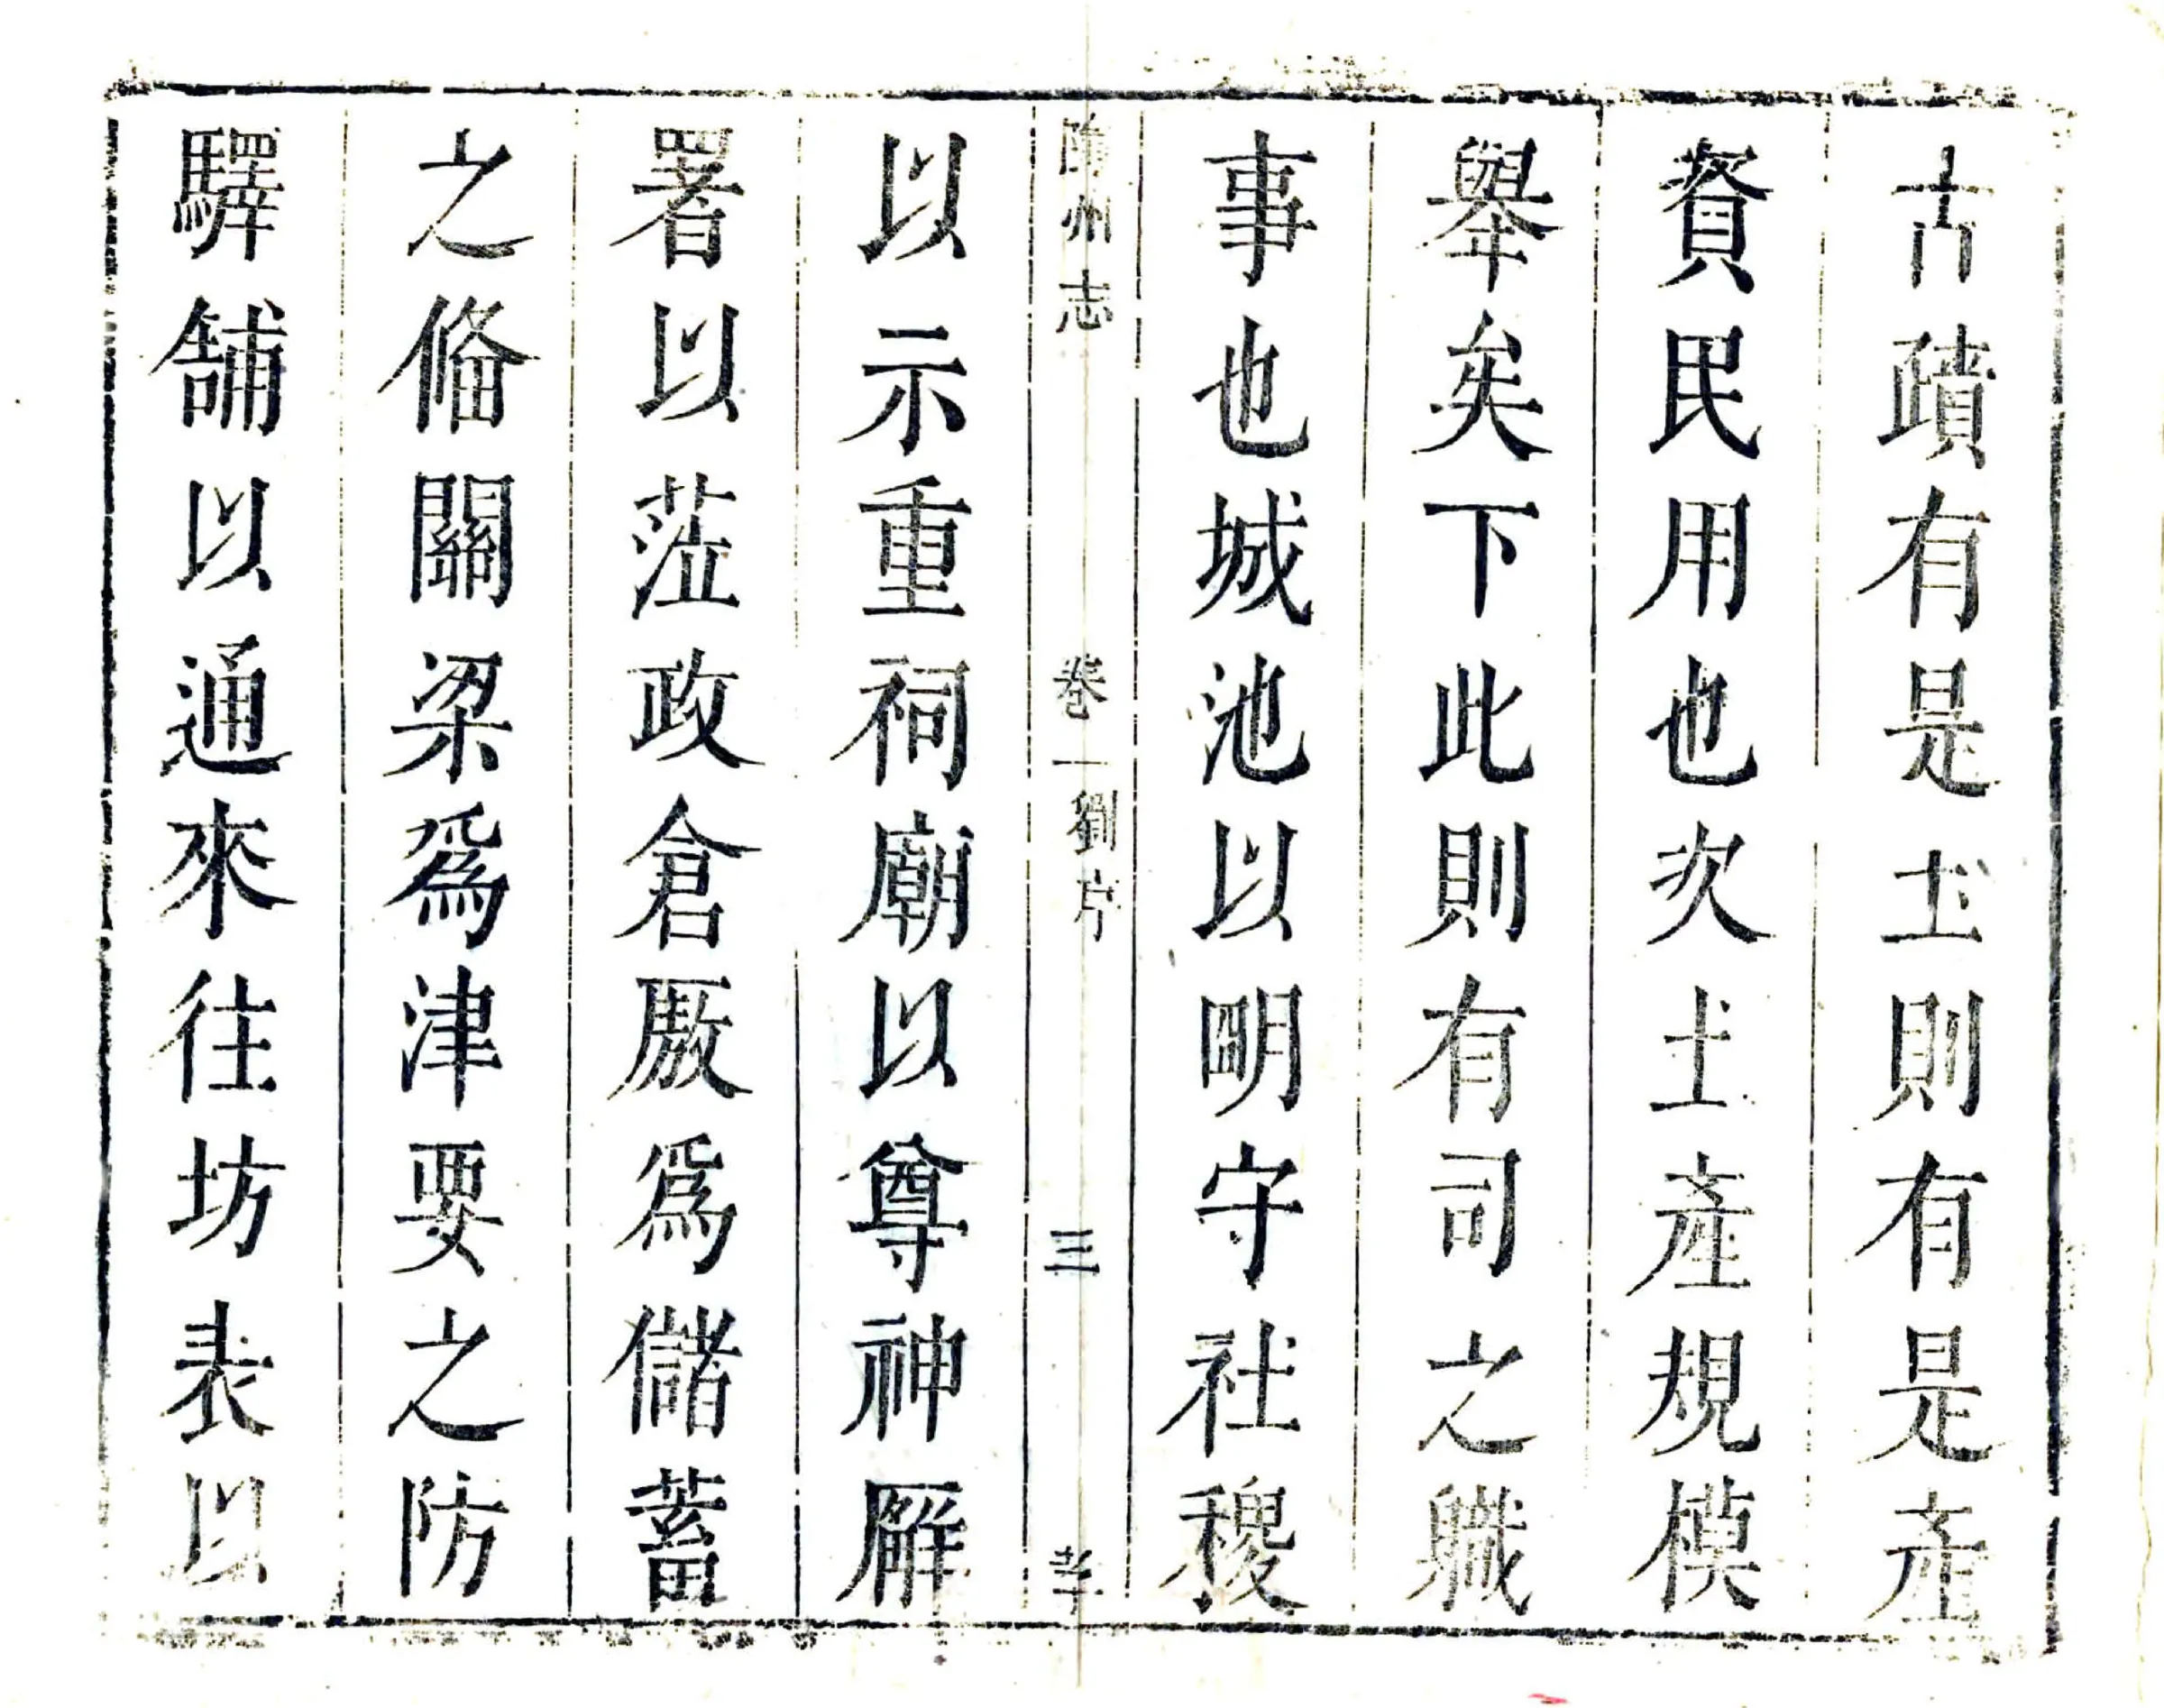 古蹟有是圡則有是產
資民用也次土產規模
舉矣下此則有司之軄
事也城池以明守社稷
州志 卷一 劉序 三 孝
以示重祠廟以尊神廨
署以蒞政倉厫爲儲蓄
之俻關梁爲津要之防
驛舖以通來往坊表以